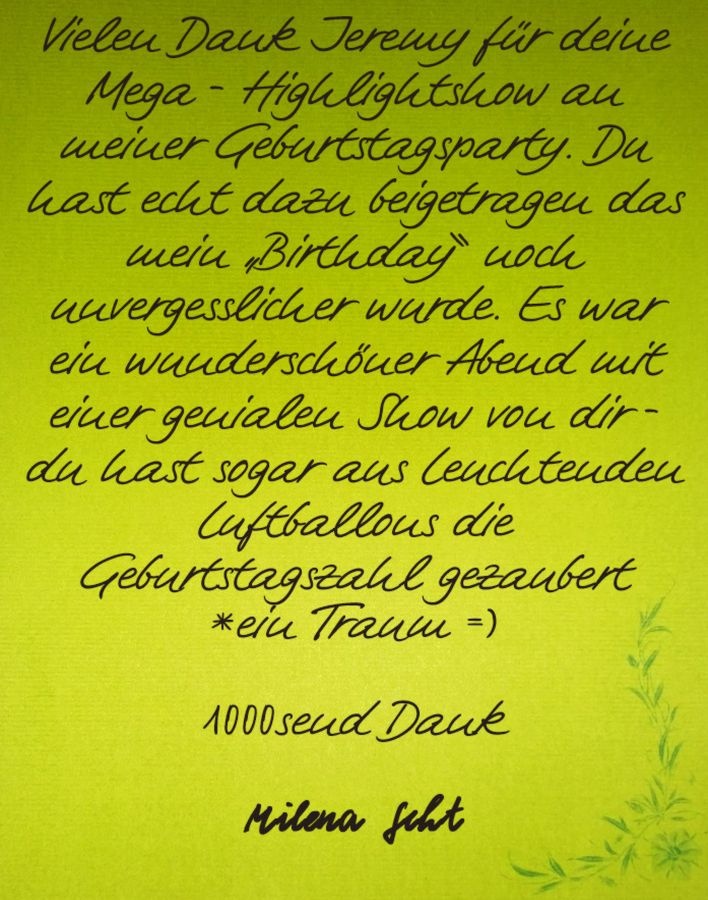 Vielen Dank Jeremy für deine
Mega - Highlightshow an
meiner Geburtstagsparty. Du
hast echt dazu beigetragen das
mein „Birthday“ noch
unvergesslicher wurde. Es war
ein wunderschöner Abend mit
einer genialen Show von dir-
du hast sogar aus leuchtenden
Luftballons die
Geburtstagszahl gezaubert
*ein Traum =)
1000send Dank
Milena